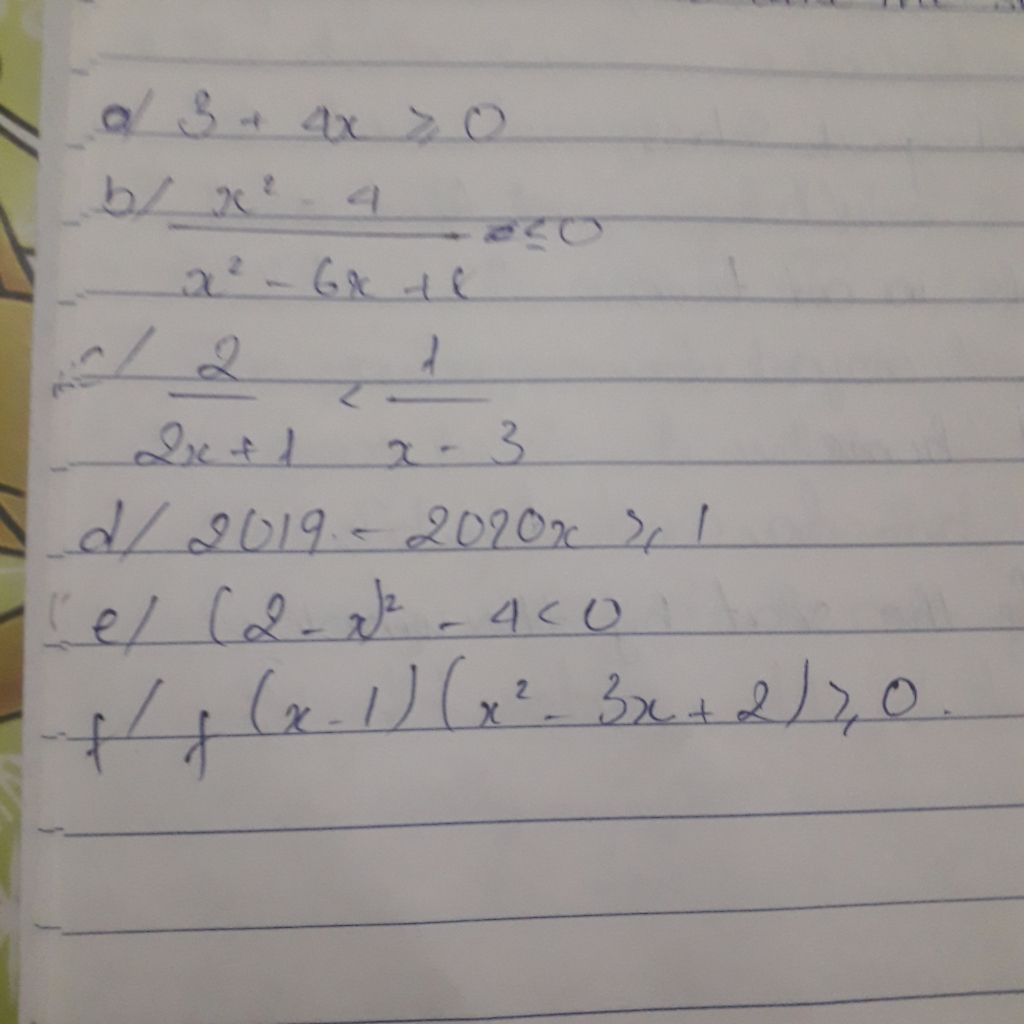 a/ 3 + 4x ≥ 0
b/ x² - 4
≤ 0
x² - 6x +
c/ 2 1
<
2x + 1 x - 3
d/ 2019 - 2020x ≥ 1
e/ (2 - x)² - 4 < 0
f/ f (x - 1) (x² - 3x + 2) ≥ 0.